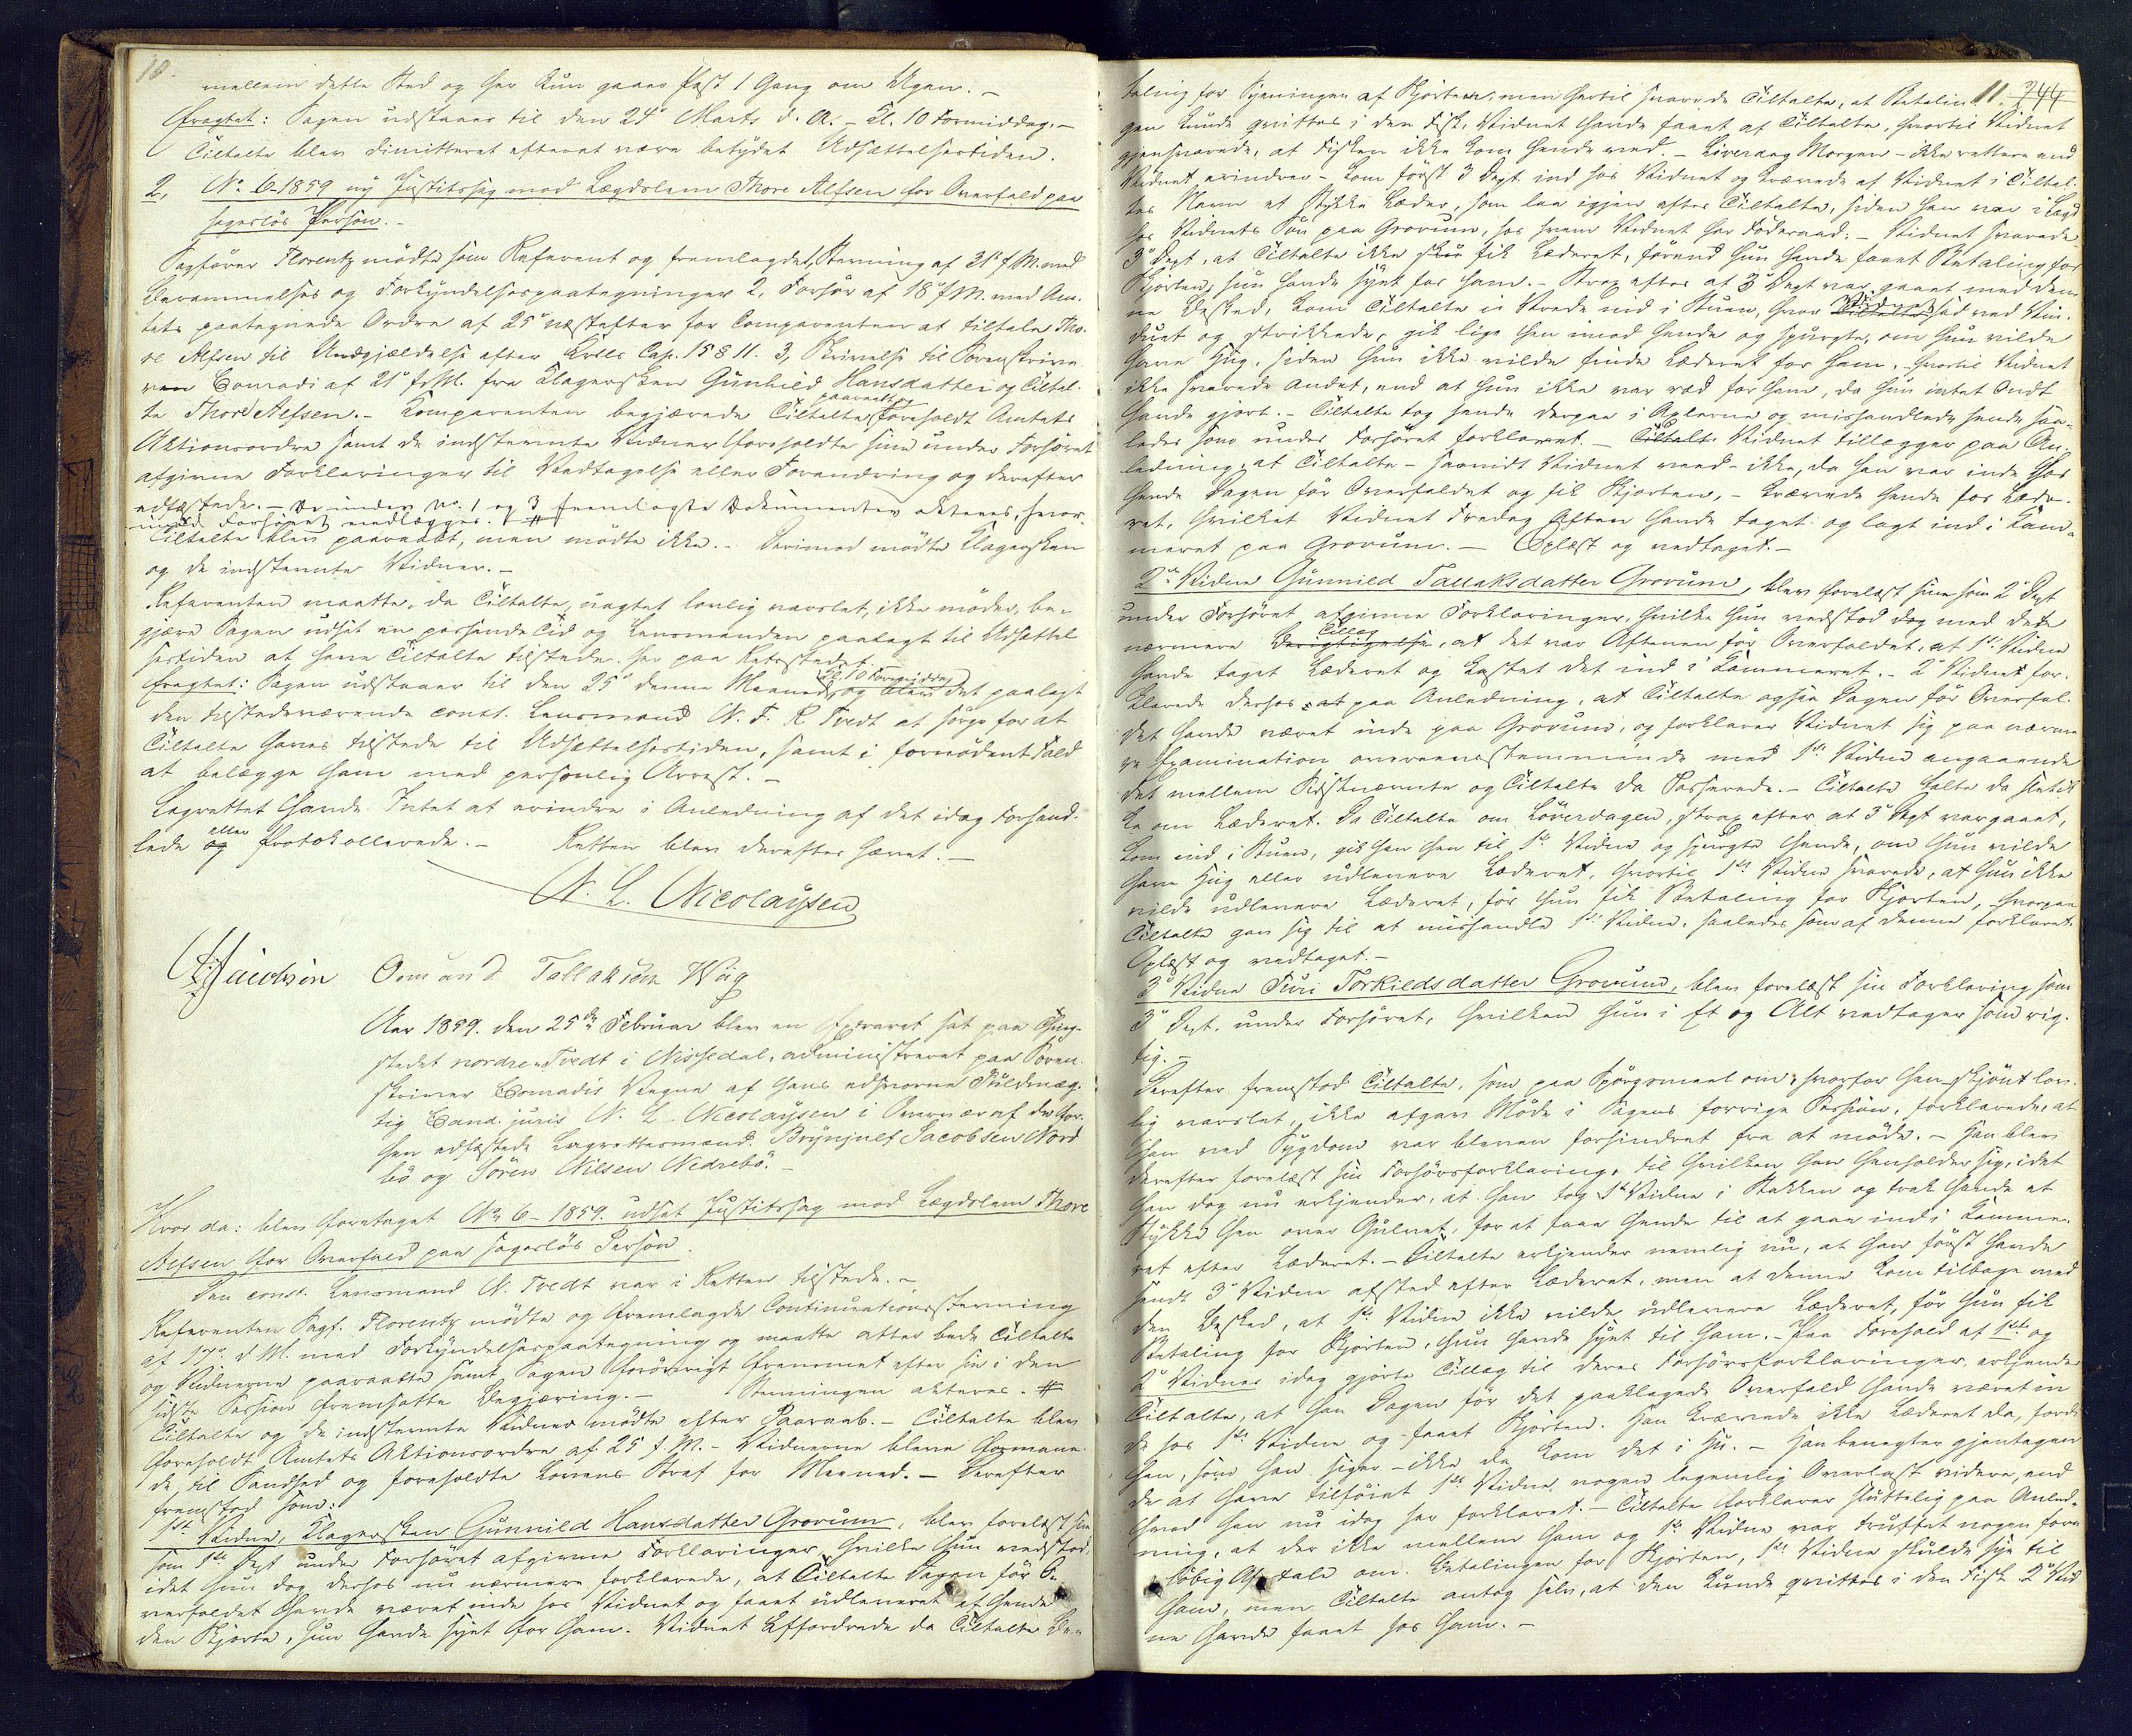 10.
mellem dette Sted og her kun gaaer Post 1 Gang om Ugen. –
Eragtet: Sagen udstaaer til den 24de Marts d. A. – Kl. 10 Formiddag. –
Tiltalte blev dimitteret efterat være betydet Udsættelsestiden.
2, No 6-1859 ny Justitssag mod Lægdslem Thore Alfsen for Overfald paa
sagesløs Person. –
Sagfører Florentz mødte som Referent og fremlagde 1, Stevning af 31te f. M. med
Berammelses og Forkyndelsespaategninger 2, Forhør af 18de f. M. med Am-
tets paategnede Ordre af 25de næstefter for Comparenten at tiltale Tho-
re Alfsen til Undgjældelse efter Krlls Cap. 15 § 11. 3, Skrivelse til Sorenskrive-
ren Conradi af 21de f. M. fra Klagersken Gunhild Hansdatter og Tiltal-
te Thore Alfsen. – Komparenten begjærede Tiltalte paaraabt og foreholdt Amtets
Aktionsordre samt de indstevnte Vidner foreholdte sine under Forhøret
afgivne Forklaringer til Vedtagelse eller Forandring og derefter
edfæstede. – De under No. 1 og 3 fremlagte Dokumenter akteres, hvor-
imod Forhøret vedlægges. #
Tiltalte blev paaraabt, men mødte ikke. – Derimod mødte Klagersken
og de indstevnte Vidner. –
Referenten maatte, da Tiltalte, uagtet lovlig varslet, ikke møder, be-
gjære Sagen udsat en passende Tid og Lensmanden paalagt til Udsættel-
sestiden at have Tiltalte tilstede her paa Retsstedet.
Eragtet: Sagen udstaaer til den 25de denne Maaned Kl. 10 Formiddag og blev det paalagt
den tilstedeværende const. Lensmand N. F. R Tvedt at sørge for at
Tiltalte haves tilstede til Udsettelsestiden, samt i fornødent Fald
at belægge ham med personlig Arrest. –
Lagrettet havde Intet at erindre i Anledning af det idag Forhand-
lede og eller Protokollerede. – Retten blev derefter hævet. –
N. L. Nicolaysen
Jacobsen Omund Tallaksen Wiig
Aar 1859. den 25de Februar blev en Extraret sat paa Thing-
stedet nordre Tvedt i Nissedal, administreret paa Soren-
skriver Conradis Vegne af hans edsvorne Fuldmæg-
tig Cand. juris N. L. Nicolaysen i Overvær af de for-
hen edfæstede Lagrettesmænd: Brynjulf Jacobsen Nord-
bø og Søren Nilsen Nedrebø. –
Hvor da: blev foretaget No 6-1859. udsat Justitssag mod Lægdslem Thore
Alfsen for Overfald paa sagesløs Person.
Den const. Lensmand N. Tvedt var i Retten tilstede. –
Referenten Sagf. Florentz mødte og fremlagde Continuationsstevning
af 17de d. M. med Forkyndelsespaategning og maatte atter bede Tiltalte
og Vidnerne paaraabte samt Sagen forøvrigt fremmet efter sin i den
sidste Session fremsatte Begjæring. – Stevningen akteres. #
Tiltalte og de indstevnte Vidner mødte efter Paaraab. – Tiltalte blev
foreholdt Amtets Aktionsordre af 25 f. M. – Vidnerne bleve formane-
de til Sandhed og foreholdte Lovens Straf for Meened. – Derefter
fremstod som:
1ste Vidne, Klagersken Gunnild Hansdatter Grovum, blev forelæst sin
som 1ste Dept under Forhøret afgivne Forklaringer, hvilke hun vedstod,
idet hun dog derhos nu nærmere forklarede, at Tiltalte Dagen før O-
verfaldet havde været inde hos Vidnet og faaet udleveret af hende
den Skjorte, hun havde syet for ham. Vidnet affordrede da Tiltalte Be-
11. 244
taling for Syeningen af Skjorten, men hertil svarede Tiltalte, at Betalin-
gen kunde qvittes i den Fisk, Vidnet havde faaet af Tiltalte, hvortil Vidnet
gjensvarede, at Fisken ikke kom hende ved. – Løverdag Morgen – ikke rettere end
Vidnet erindrer – kom først 3 Dept. ind hos Vidnet og krævede af Vidnet i Tiltal-
tes Navn et Stykke Læder, som laa igjen efter Tiltalte, siden han var i Lægd
hos Vidnets Søn paa Grovum, hos hvem Vidnet har Føderaad. – Vidnet svarede
3de Dept, at Tiltalte ikke fik Læderet, førend hun havde faaet Betaling for
Skjorten, hun havde syet for ham. – Strax efter at 3de Dept var gaaet med den-
ne Besked, kom Tiltalte i Vrede ind i Stuen, hvor Tiltalte Vidnet sad ved Vin-
duet og strikkede, gik lige hen imod hende og spurgte, om hun vilde
have Hug, siden hun ikke vilde finde Læderet for ham, hvortil Vidnet
ikke svarede Andet, end at hun ikke var ræd for ham, da hun intet Ondt
havde gjort. – Tiltalte tog hende derpaa i Axlerne og mishandlede hende saa-
ledes som under Forhøret forklaret. – Tiltalte Vidnet tillægger paa An-
ledning, at Tiltalte – saavidt Vidnet veed – ikke, da han var inde hos
hende Dagen før Overfaldet og fik Skjorten, – krævede hende for Læde-
ret, hvilket Vidnet Fredag Aften havde taget og lagt ind i Kam-
meret paa Grovum. – Oplæst og vedtaget. –
2de Vidne Gunnild Tallaksdatter Grovum, blev forelæst sine som 2de Dept
under Forhøret afgivne Forklaringer, hvilke hun vedstod dog med dette
nærmere Berigtigelse Tillæg, at det var Aftenen før Overfaldet, at 1ste Vidne
havde taget Læderet og kastet det ind i Kammeret. – 2de Vidnet for-
klarede derhos at paa Anledning, at Tiltalte ogsaa Dagen før Overfal-
det havde været inde paa Grovum, og forklarer Vidnet sig paa nærme-
re Examination overeensstemmende med 1ste Vidne angaaende
det mellem Sidstnævnte og Tiltalte da Passerede. – Tiltalte talte da slet ik-
ke om Læderet. Da Tiltalte om Løverdagen, strax efter at 3de Dept var gaaet,
kom ind i Stuen, gik han hen til 1ste Vidne og spurgte hende, om hun vilde
have Hug eller udlevere Læderet, hvortil 1ste Vidne svarede, at hun ikke
vilde udlevere Læderet, før hun fik Betaling for Skjorten, hvorpaa
Tiltalte gav sig til at mishandle 1ste Vidne, saaledes som af denne forklaret.
Oplæst og vedtaget. –
3de Vidne Turi Torkildsdatter Grovum, blev forelæst sin Forklaring som
3de Dept. under Forhøret, hvilken hun i Et og Alt vedtager som rig-
tig. –
Derefter fremstod Tiltalte, som paa Spørgsmaal om, hvorfor han, skjønt lov-
lig varslet, ikke afgav Møde i Sagens forrige Session, forklarede, at
han ved Sygdom var bleven forhindret fra at møde. – Han blev
derefter forelæst sin Forhørsforklaring, til hvilken han henholder sig, idet
han dog nu erkjender, at han tog 1ste Vidne i Nakken og trak hende et
Stykke hen over Gulvet, for at faae hende til at gaae ind i Kamme-
ret efter Læderet. – Tiltalte erkjender nemlig nu, at han først havde
sendt 3de Vidne afsted efter Læderet, men at denne kom tilbage med
den Besked, at 1ste Vidne ikke vilde udlevere Læderet, før hun fik
Betaling for Skjorten, hun havde syet til ham. – Paa Forehold af 1ste og
2det Vidnes idag gjorte Tillæg til deres Forhørsforklaringer, erkjender
Tiltalte, at han Dagen før det paaklagede Overfald havde været in-
de hos 1ste Vidne og faaet Skjorten. Han krævede ikke Læderet da, fordi
han, som han siger – ikke da kom det i Hu. – Han benegter gjentagen-
de at have tilføiet 1ste Vidne nogen legemlig Overlast videre, end
hvad han nu idag har forklaret. – Tiltalte forklarer sluttelig paa Anled-
ning, at der ikke mellem ham og 1ste Vidne var truffet nogen fore-
løbig Aftale om Betalingen for Skjorten, 1ste Vidne skulde sye til
ham, men Tiltalte antog selv, at den kunde qvittes i den Fisk 2de Vid-
ne havde faaet hos ham. –